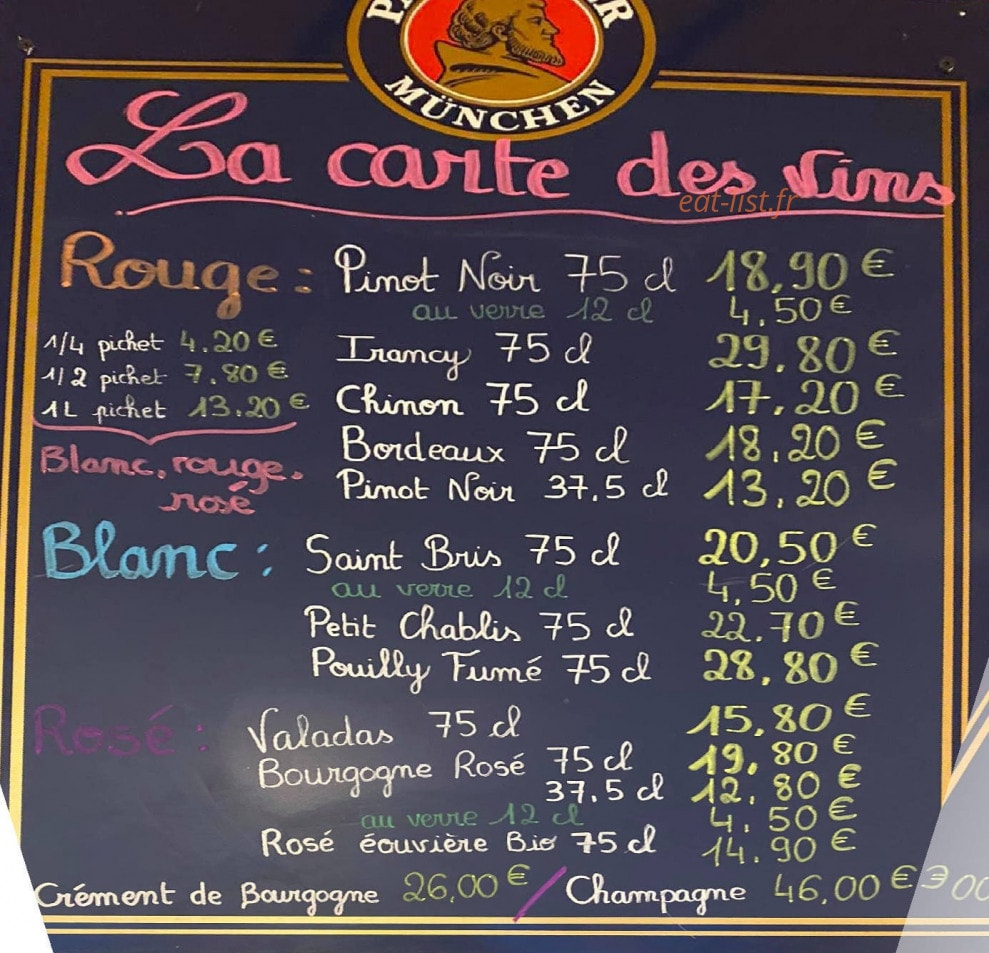 MÜNCHEN
La carte des vins
eat-list.fr
Rouge : Pinot Noir 75 cl 18,90 €
au verre 12 cl 4,50 €
1/4 pichet 4,20 € Irancy 75 cl 29,80 €
1/2 pichet 7.80 € Chinon 75 cl 17,20 €
1L pichet 13.20 € Bordeaux 75 cl 18,20 €
Blanc, rouge, rosé Pinot Noir 37,5 cl 13,20 €
Blanc : Saint Bris 75 cl 20,50 €
au verre 12 cl 4,50 €
Petit Chablis 75 cl 22.70 €
Pouilly Fumé 75 cl 28,80 €
Rosé : Valadas 75 cl 15,80 €
Bourgogne Rosé 75 cl 19,80 €
37,5 cl 12,80 €
au verre 12 cl 4,50 €
Rosé éouvière Bio 75 cl 14.90 €
Crément de Bourgogne 26,00 € / Champagne 46,00 €